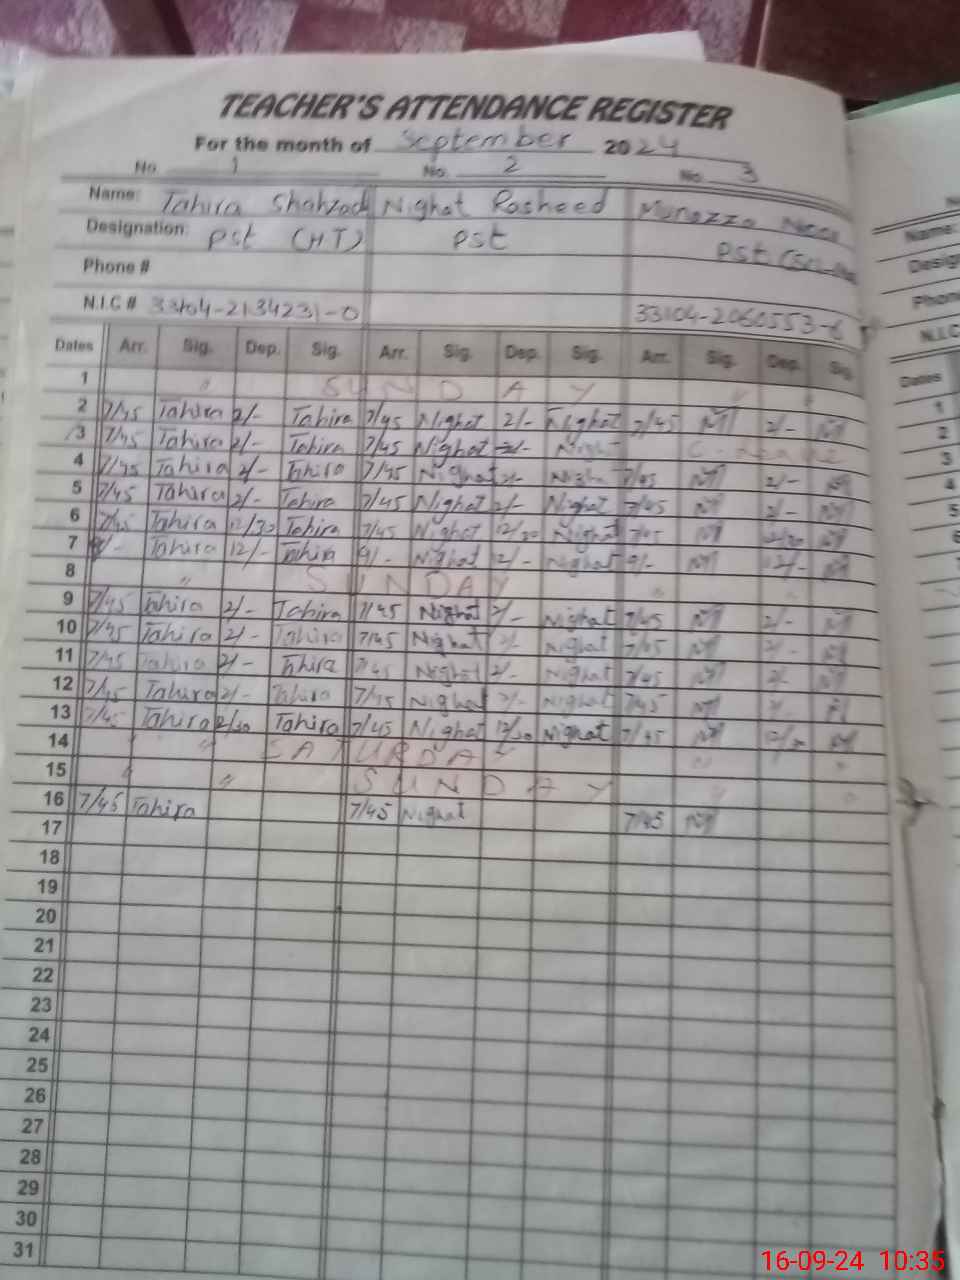 TEACHER'S ATTENDANCE REGISTER
For the month of September 2024
No. 1 No. 2 No. 3
Name: Tahira Shahzadi Nighat Rasheed Munazza
Designation: PST (HT) PST PST
Phone #
N.I.C # 33104-2134231-0 33104-2060553-6
Dates Arr. Sig. Dep. Sig. Arr. Sig. Dep. Sig. Arr. Sig. Dep. Sig.
1 " SUNDAY "
2 7/45 Tahira 2/- Tahira 7/45 Nighat 2/- Nighat 7/45 2/-
3 7/45 Tahira 2/- Tahira 7/45 Nighat 2/- Nighat C-leave
4 7/45 Tahira 2/- Tahira 7/45 Nighat 2/- Nighat 7/45 2/-
5 7/45 Tahira 2/- Tahira 7/45 Nighat 2/- Nighat 7/45 2/-
6 7/45 Tahira 12/30 Tahira 7/45 Nighat 12/30 Nighat 7/45 12/30
7 Tahira 12/- Tahira 9/- Nighat 12/- Nighat 9/- 12/-
8 " SUNDAY "
9 7/45 Tahira 2/- Tahira 7/45 Nighat 2/- Nighat 7/45 2/-
10 7/45 Tahira 2/- Tahira 7/45 Nighat 2/- Nighat 7/45 2/-
11 7/45 Tahira 2/- Tahira 7/45 Nighat 2/- Nighat 7/45 2/-
12 7/45 Tahira 2/- Tahira 7/45 Nighat 2/- Nighat 7/45 2/-
13 7/45 Tahira 12/30 Tahira 7/45 Nighat 12/30 Nighat 7/45 12/30
14 " " SATURDAY " "
15 " " SUNDAY "
16 7/45 Tahira 7/45 Nighat 7/45
17
18
19
20
21
22
23
24
25
26
27
28
29
30
31
Name:
N.I.C
Dates
1
2
3
4
5
6
16-09-24 10:35